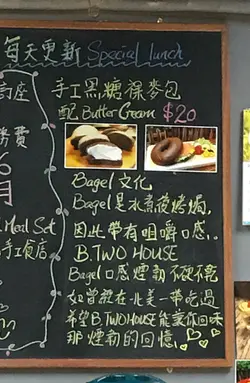 每天更新 Special lunch
訂座
務費
6
月
Meal Set
手工飯店
手工黑糖裸麥包
配 Butter Cream $20
Bagel 文化
Bagel 是水煮後烤焗,
因此帶有咀嚼口感..
B.TWO HOUSE
Bagel 口感煙韌不硬不乾
如曾經在北美一帶吃過
希望B.TWO HOUSE 能讓你回味
那煙韌的回憶.